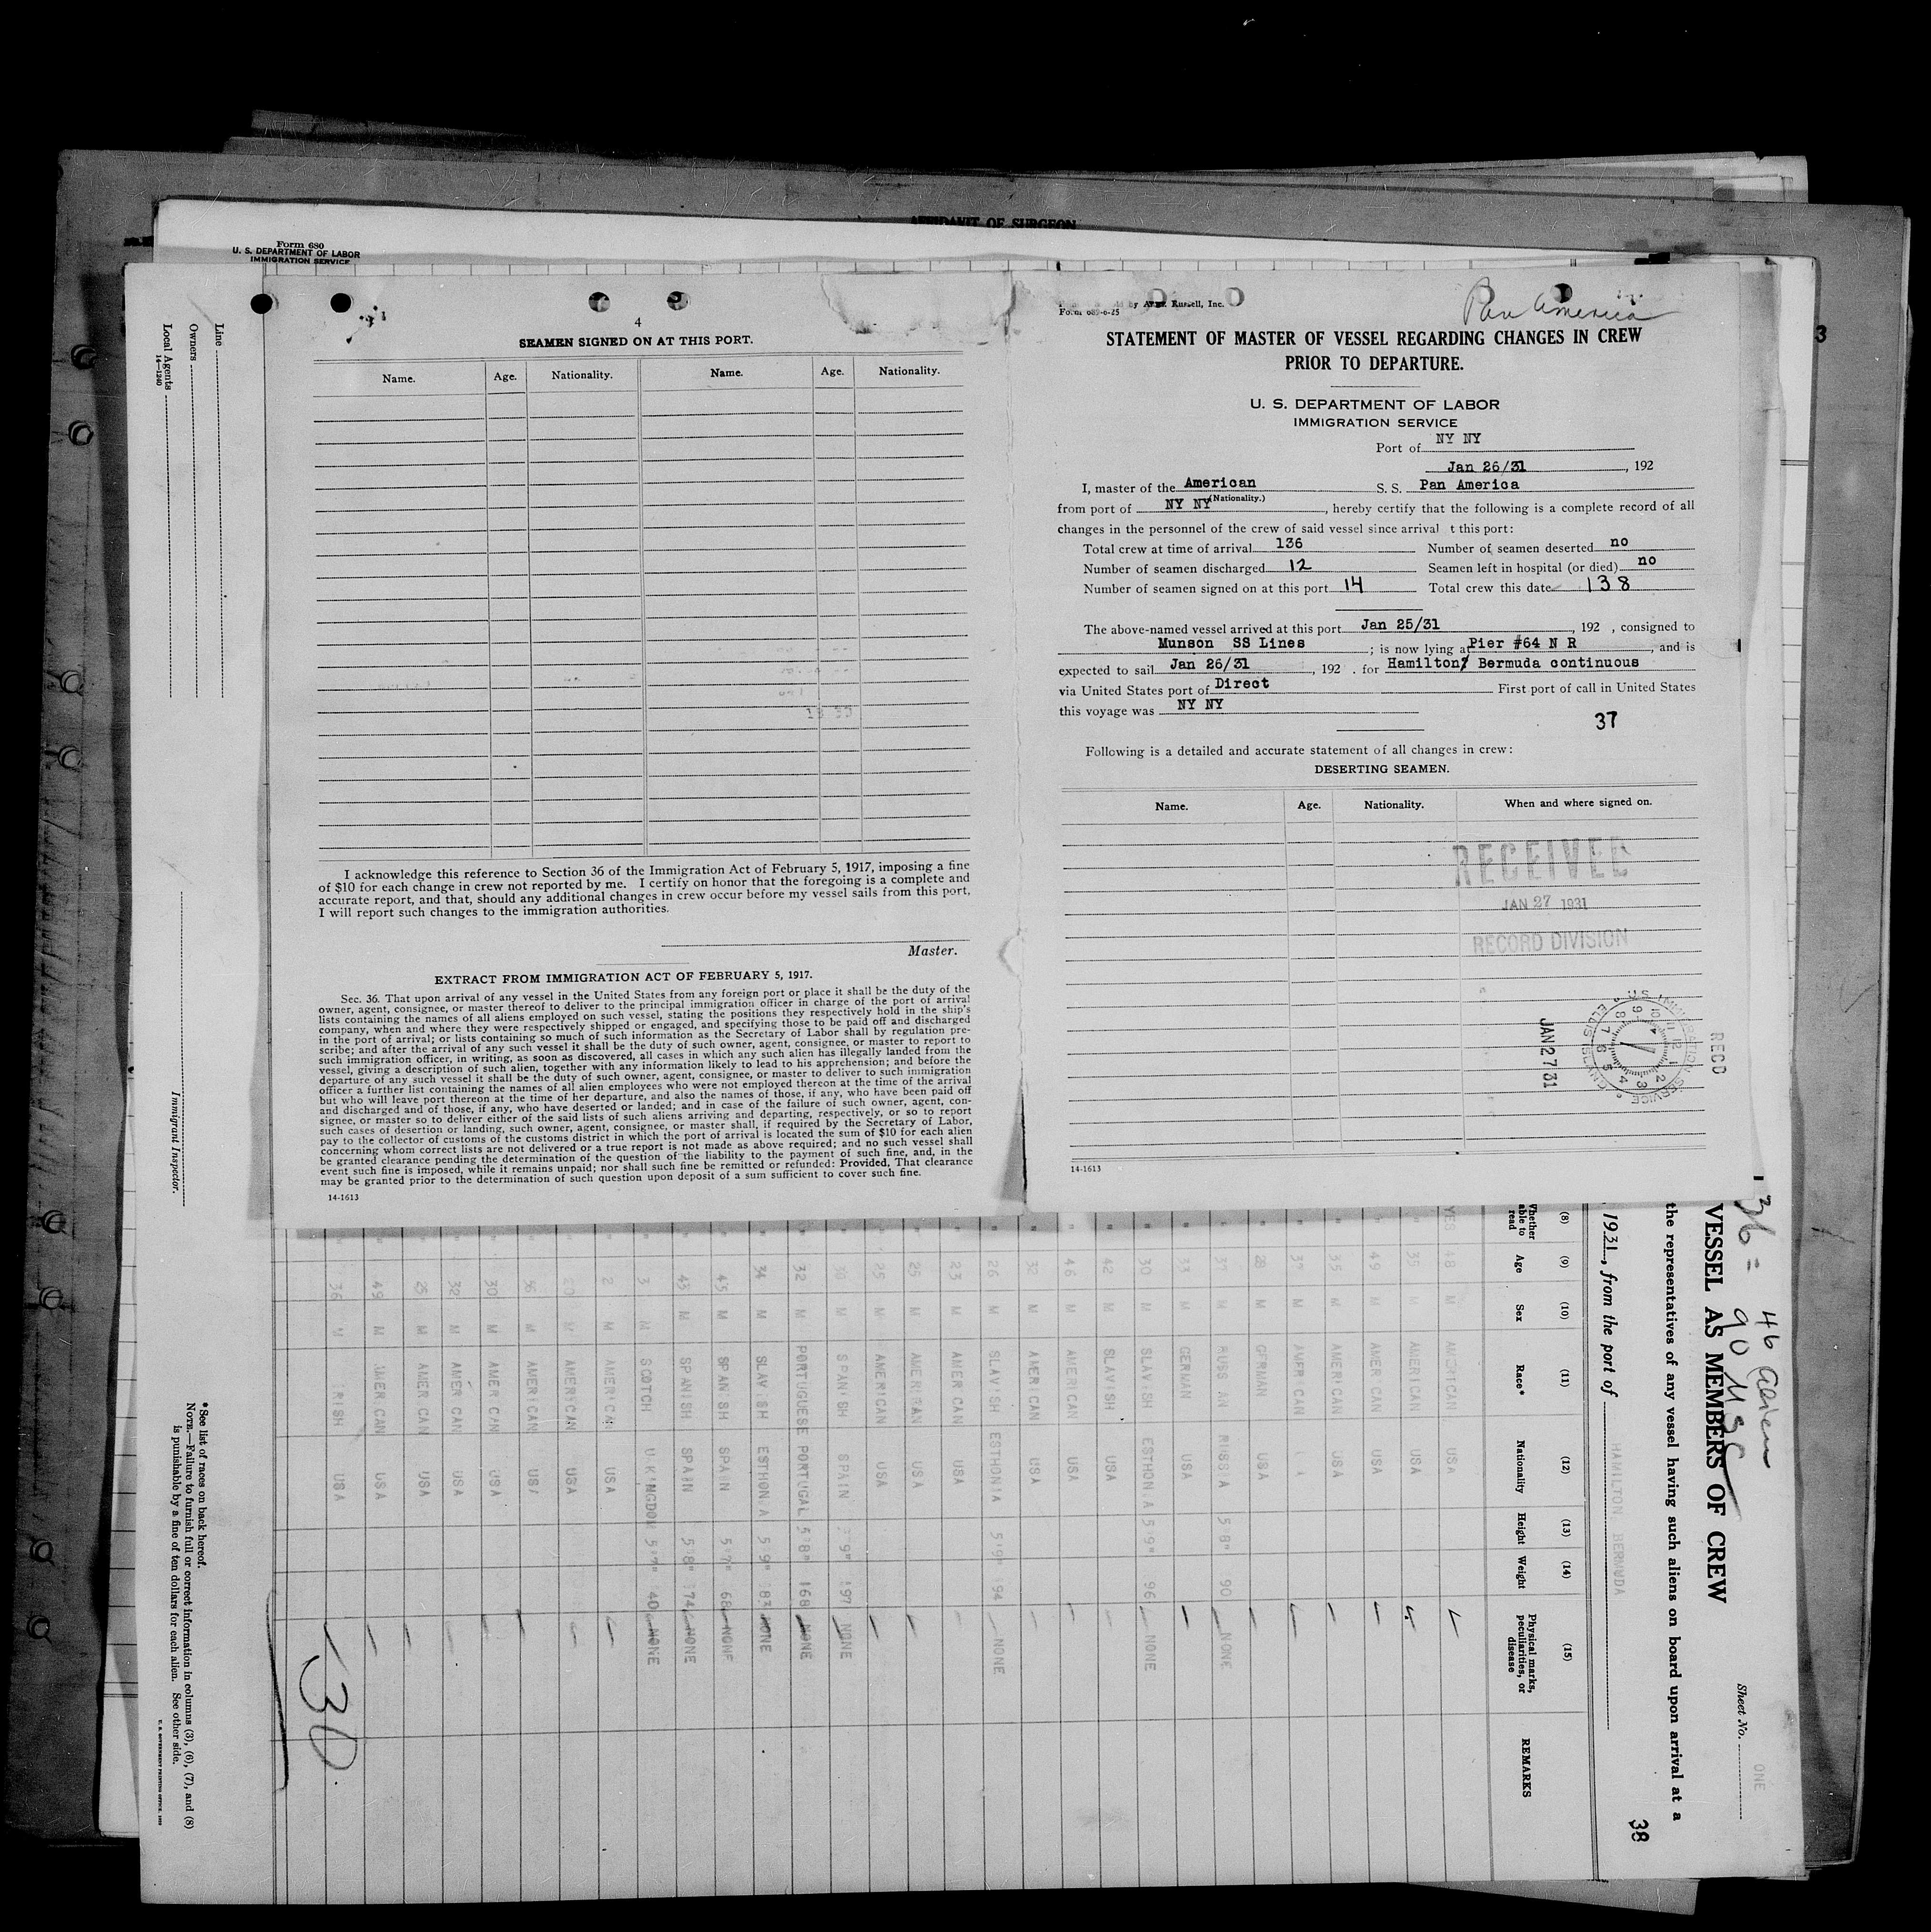 AFFIDAVIT OF SURGEON
Form 680
U. S. DEPARTMENT OF LABOR
IMMIGRATION SERVICE
3
4
SEAMEN SIGNED ON AT THIS PORT.
Name. Age. Nationality. Name. Age. Nationality.
I acknowledge this reference to Section 36 of the Immigration Act of February 5, 1917, imposing a fine
of $10 for each change in crew not reported by me. I certify on honor that the foregoing is a complete and
accurate report, and that, should any additional changes in crew occur before my vessel sails from this port,
I will report such changes to the immigration authorities.
Master.
EXTRACT FROM IMMIGRATION ACT OF FEBRUARY 5, 1917.
Sec. 36. That upon arrival of any vessel in the United States from any foreign port or place it shall be the duty of the
owner, agent, consignee, or master thereof to deliver to the principal immigration officer in charge of the port of arrival
lists containing the names of all aliens employed on such vessel, stating the positions they respectively hold in the ship's
company, when and where they were respectively shipped or engaged, and specifying those to be paid off and discharged
in the port of arrival; or lists containing so much of such information as the Secretary of Labor shall by regulation pre-
scribe; and after the arrival of any such vessel it shall be the duty of such owner, agent, consignee, or master to report to
such immigration officer, in writing, as soon as discovered, all cases in which any such alien has illegally landed from the
vessel, giving a description of such alien, together with any information likely to lead to his apprehension; and before the
departure of any such vessel it shall be the duty of such owner, agent, consignee, or master to deliver to such immigration
officer a further list containing the names of all alien employees who were not employed thereon at the time of the arrival
but who will leave port thereon at the time of her departure, and also the names of those, if any, who have been paid off
and discharged and of those, if any, who have deserted or landed; and in case of the failure of such owner, agent, con-
signee, or master so to deliver either of the said lists of such aliens arriving and departing, respectively, or so to report
such cases of desertion or landing, such owner, agent, consignee, or master shall, if required by the Secretary of Labor,
pay to the collector of customs of the customs district in which the port of arrival is located the sum of $10 for each alien
concerning whom correct lists are not delivered or a true report is not made as above required; and no such vessel shall
be granted clearance pending the determination of the question of the liability to the payment of such fine, and, in the
event such fine is imposed, while it remains unpaid; nor shall such fine be remitted or refunded: Provided, That clearance
may be granted prior to the determination of such question upon deposit of a sum sufficient to cover such fine.
14-1613
by Russell, Inc.
Form 689-6-25
Pan America
STATEMENT OF MASTER OF VESSEL REGARDING CHANGES IN CREW
PRIOR TO DEPARTURE.
U. S. DEPARTMENT OF LABOR
IMMIGRATION SERVICE
Port of NY NY
Jan 26/31, 192
I, master of the American S. S. Pan America
(Nationality.)
from port of NY NY, hereby certify that the following is a complete record of all
changes in the personnel of the crew of said vessel since arrival t this port:
Total crew at time of arrival 136 Number of seamen deserted no
Number of seamen discharged 12 Seamen left in hospital (or died) no
Number of seamen signed on at this port 14 Total crew this date 138
The above-named vessel arrived at this port Jan 25/31, 192 , consigned to
Munson SS Lines; is now lying at Pier #64 N R, and is
expected to sail Jan 26/31, 192 . for Hamilton, Bermuda continuous
via United States port of Direct First port of call in United States
this voyage was NY NY
37
Following is a detailed and accurate statement of all changes in crew:
DESERTING SEAMEN.
Name. Age. Nationality. When and where signed on.
RECEIVED
JAN 27 1931
RECORD DIVISION
JAN 27 31
RECD
U.S. IMMIGRATION SERVICE
ELLIS ISLAND
14-1613
136 = 46 alien
90 USC
Sheet No. ONE
VESSEL AS MEMBERS OF CREW
the representatives of any vessel having such aliens on board upon arrival at a
1931, from the port of HAMILTON BERMUDA
38
(8) (9) (10) (11) (12) (13) (14) (15)
Whether able to read Age Sex Race* Nationality Height Weight Physical marks, peculiarities, or disease REMARKS
YES 48 M AMERICAN USA
" 35 M AMERICAN USA
" 49 M AMERICAN USA
" 35 M AMERICAN USA
" 37 M AMERICAN
" 28 M GERMAN USA
" 37 M RUSSIAN RUSSIA 5'8" 90 NONE
" 33 M GERMAN USA
" 30 M SLAVISH ESTHONIA 5'9" 96 NONE
" 42 M SLAVISH USA
" 46 M AMERICAN USA
" 32 M AMERICAN USA
" 26 M SLAVISH ESTHONIA 5'9" 194 NONE
" 23 M AMERICAN USA
" 25 M AMERICAN USA
" 25 M AMERICAN USA
" 30 M SPANISH SPAIN 5'9" 197 NONE
" 32 M PORTUGUESE PORTUGAL 5'8" 168 NONE
" 34 M SLAVISH ESTHONIA 5'9" 83 NONE
" 45 M SPANISH SPAIN 5'7" 68 NONE
" 43 M SPANISH SPAIN 5'8" 74 NONE
" 3 M SCOTCH U.KINGDOM 5'7" 40 NONE
" 2 M AMERICAN USA
" M AMERICAN USA
" 36 M AMERICAN USA
" 30 M AMERICAN USA
" 32 M AMERICAN USA
" 25 M AMERICAN USA
" 49 M AMERICAN USA
" 36 M IRISH USA
30
Line
Owners
Local Agents
14-1240
Immigrant Inspector.
*See list of races on back hereof.
NOTE.—Failure to furnish full or correct information in columns (3), (6), (7), and (8)
is punishable by a fine of ten dollars for each alien. See other side.
U. S. GOVERNMENT PRINTING OFFICE